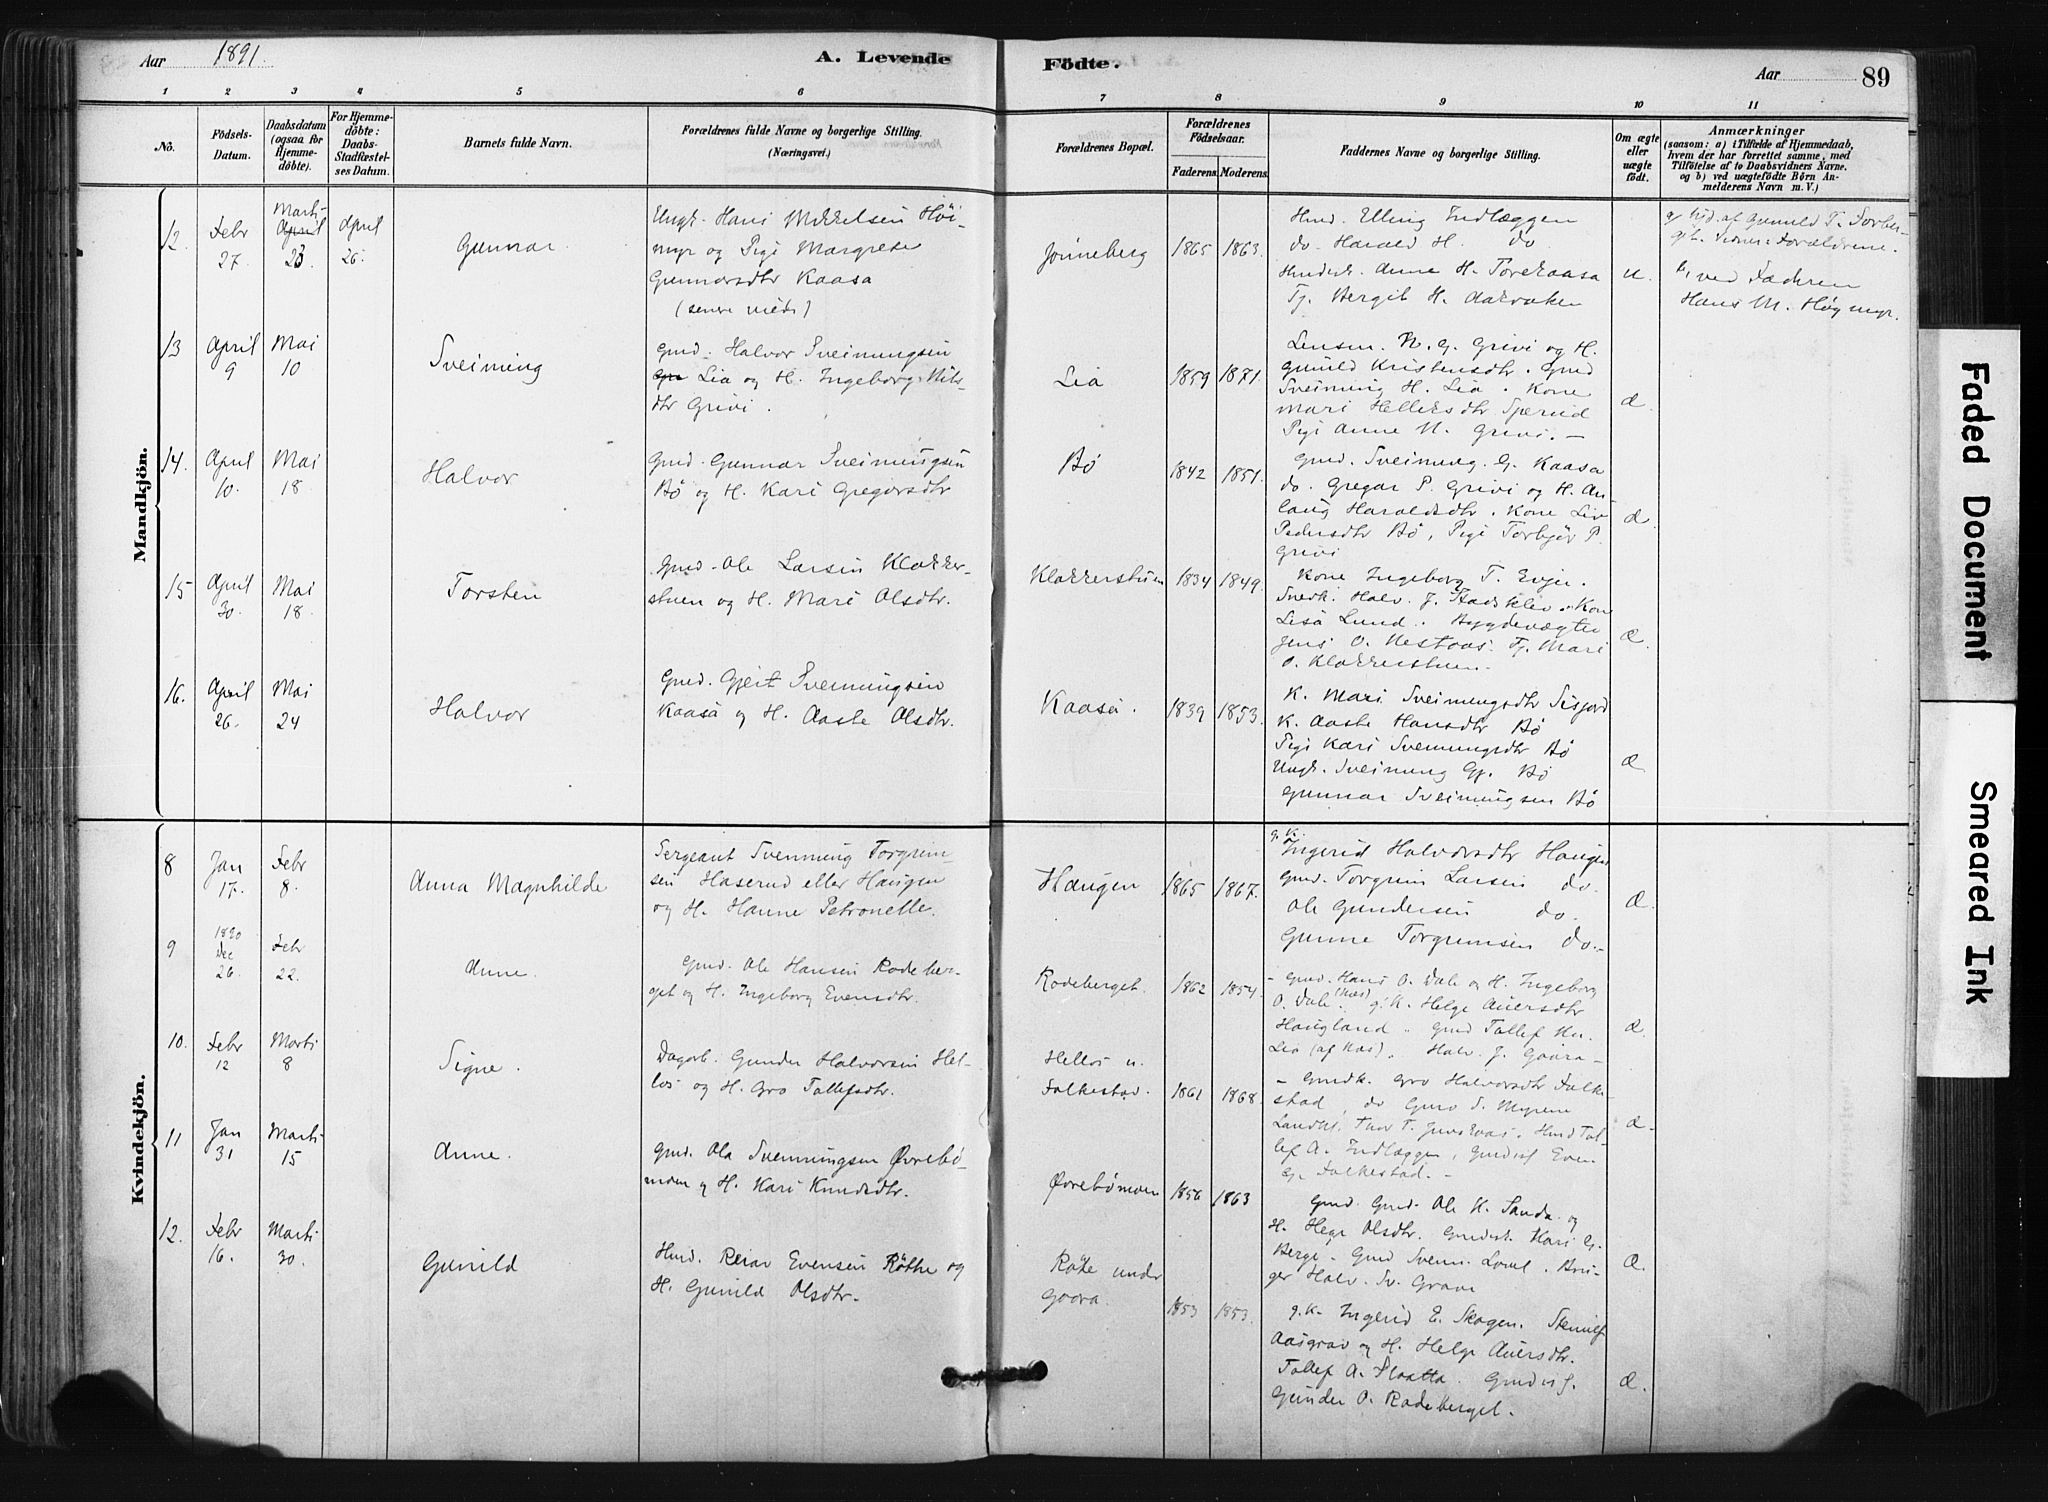 Aar 1891.
A. Levende
Födte.
Aar
89
1 2 3 4 5 6 7 8 9 10 11
No.
Födsels-
Datum.
Daabsdatum
(ogsaa for
Hjemme-
döbte).
For Hjemme-
döbte:
Daabs-
Stadfæstel-
ses Datum.
Barnets fulde Navn.
Forældrenes fulde Navne og borgerlige Stilling.
(Næringsvei.)
Forældrenes Bopæl.
Forældrenes
Födselsaar.
Faderens. Moderens.
Faddernes Navne og borgerlige Stilling.
Om ægte
eller
uægte
födt.
Anmærkninger
(saasom: a) i Tilfælde af Hjemmedaab,
hvem der har forrettet samme, med
Tilföielse af to Daabsvidners Navne.
og b) ved uægtefödte Börn An-
melderens Navn m. V.)
Mandkjön.
12
Febr
27
Marti
April
23.
April
26.
Gunnar
Ungk. Hans Mikkelsen Höi-
myr og Pige Margrese
Gunnarsdtr Kaasa
Jönneberg
1865
1863.
Hmd. Elling Indlæggen
do. Harald H. do
Anne H. Torekaasa
Tj. Bergit H.
u.
af Gunuld T.
Forældrene.
b, ved Faderen
Hans M. Høgmyr.
13
April
9
Mai
10
Sveinung
Gmd. Halvor Sveinungsen
Lia og H. Ingeborg Nils-
dtr Grivi.
Lia
1859
1871.
Lensm. N. G. Grivi og H.
Gunild Kristensdtr. Gmd
Sveinung H. Lia. Kone
Mari Helleksdtr
Pige Anne N. Grivi. –
Æ.
14.
April
10.
Mai
18
Halvor
Gmd. Gunnar Sveinungsen
Bö og H. Kari Gregarsdtr
Bö
1842
1851.
Gmd. Sveinung G. Kaasa
do. Gregar P. Grivi og H. As-
laug Haraldsdtr. Kone Liv
Pedersdtr Bö, Pige Torbjör P.
Grivi
Æ.
15
April
30.
Mai
18.
Torsten
Gmd. Ole Larsen Klokker-
stuen og H. Mari Olsdtr.
Klokkerstuen
1834
1849.
Kone Ingeborg T. Evju.
Halv. J. Stadsklev. Kone
Lisa Lund. Bygdevægter
Jens O. Nestaas. Tj. Mari
O. Klokkerstuen –
Æ.
16.
April
26.
Mai
24
Halvor
Gmd. Gjeit Svennungsen
Kaasa og H. Aaste Olsdtr.
Kaasa.
1839
1853.
K. Mari Sveinungsdtr
K. Aaste Hansdtr Bö
Pige Kari Svennungsdtr Bö
Ungk. Sveinung Gj. Bö
Gunnar Sveinungsen Bö
Æ
Kvindekjön.
8
Jan
17.
Febr
8.
Anna Magnhilde
Sergeant Svennung Torgrim-
sen Haserud eller Haugen
og H. Hanne Petronelle.
Haugen
1865
1867.
g. K.
Ingerid Halvorsdtr Haugen
Gmd. Torgrim Larsen do.
Ole Gundersen do.
Gunne Torgrimsen do.-
Æ.
9
1890
Dec
26.
Febr
22.
Anne.
Gmd. Ole Hansen Rodeber-
get og H. Ingeborg Evensdtr.
Rodeberget.
1862
1854.
– Gmd. Hans O. Dale og H. Ingeborg
O. Dale. g. K. Helge Auersdtr
Haugland. Gmd Tallef
Lia (af Næs). Halv. J. Gaara –
Æ.
10.
Febr
12
Marti
8
Signe.
Dagarb. Gunder Halvorsen Hel-
los og H. Gro Tallefsdtr.
Hellos u.
Folkestad.
1861
1868.
– Gmdk. Gro Halvorsdtr Folke-
stad, do Guro S. Myrene
Thor T. Hmd Tal-
lef A. Indlæggen, Even
G. Folkestad. –
Æ.
11
Jan
31
Marti
15
Anne.
Gmd. Ola Svenningsen Øvrebö-
moen og H. Kari Knudsdtr.
Øvrebömoen
1856
1863
Gmd. Gmd. Ole K. Sanda og
H. Hege Olsdtr. Kari G.
Berge. Gmd Svenn.
Halv. Sv. Grave
Æ.
12.
Febr
16.
Marti
30.
Gunild
Hmd. Reiar Evensen Röthe og
H. Gunild Olsdtr.
under
Gaara.
1853
1853.
g. K. Ingerid E. Skogen.
Aasgrav og H. Helge Auersdtr.
Tallef A. Slaatta.
Gunder O. Rodeberget.
Æ.
Faded Document
Smeared Ink